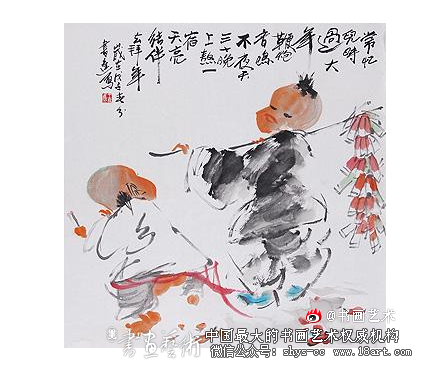 常忆
兒时
過大
年
鞭炮
鸣
不夜天
三十晚
上熬一
宿
天亮
结伴
去拜年
@书画艺术
書画藝術
中国最大的书画艺术权威机构
微信公众号: shys-cc www.18art.com